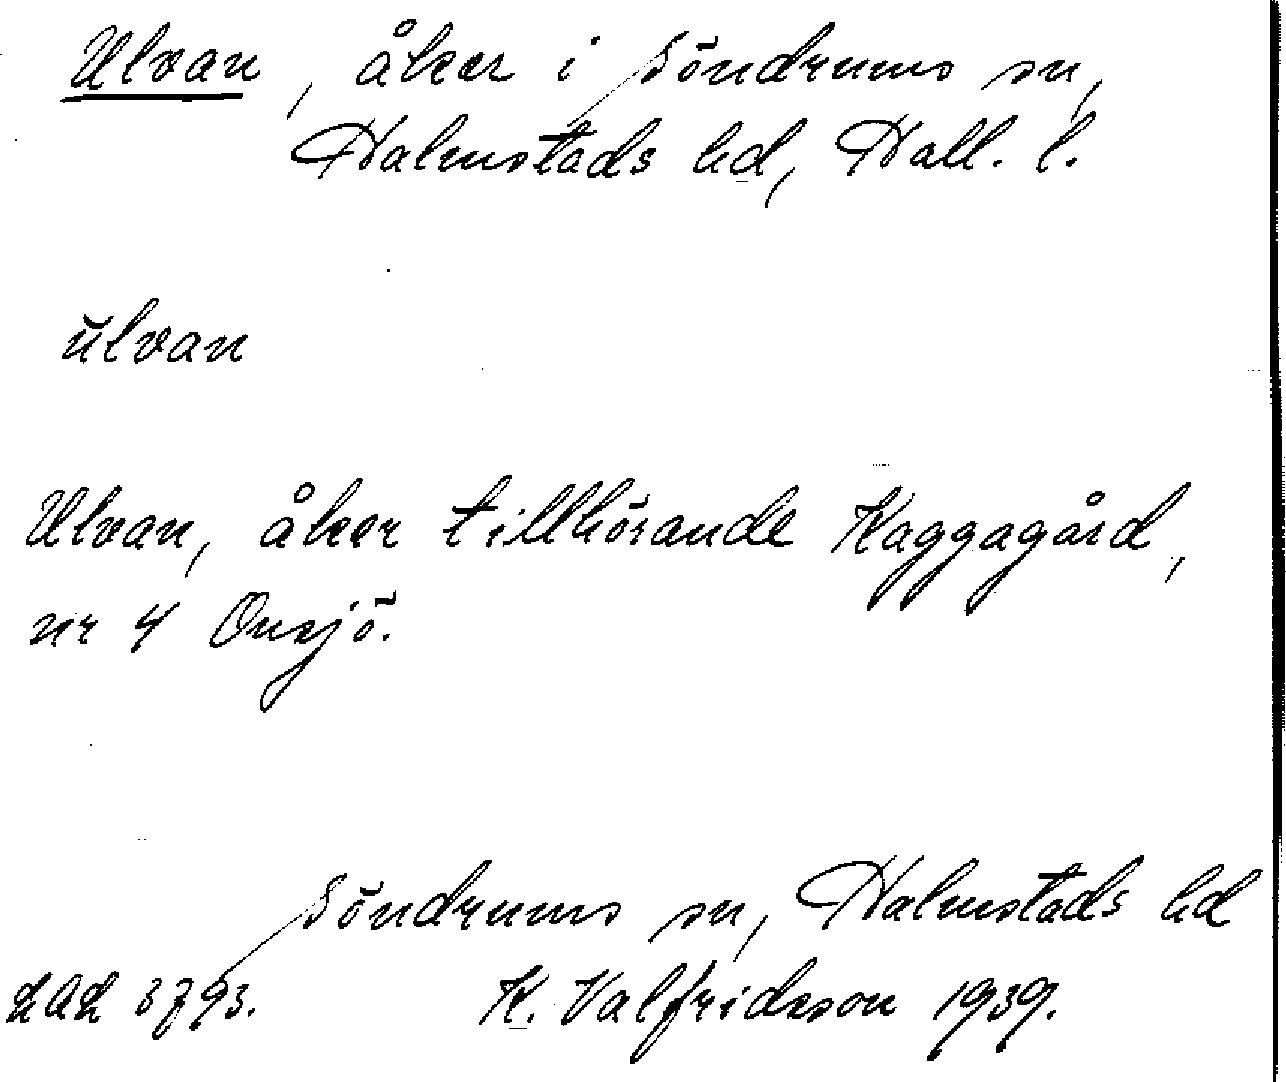 Ulvan, åker i Söndrums sn,
Halmstads hd, Hall. l.
ŭlvan
Ulvan, åker tillhörande Kaggagård,
nr 4 Onsjö.
Söndrums sn, Halmstads hd
LAL 3793. K. Valfridsson 1939.